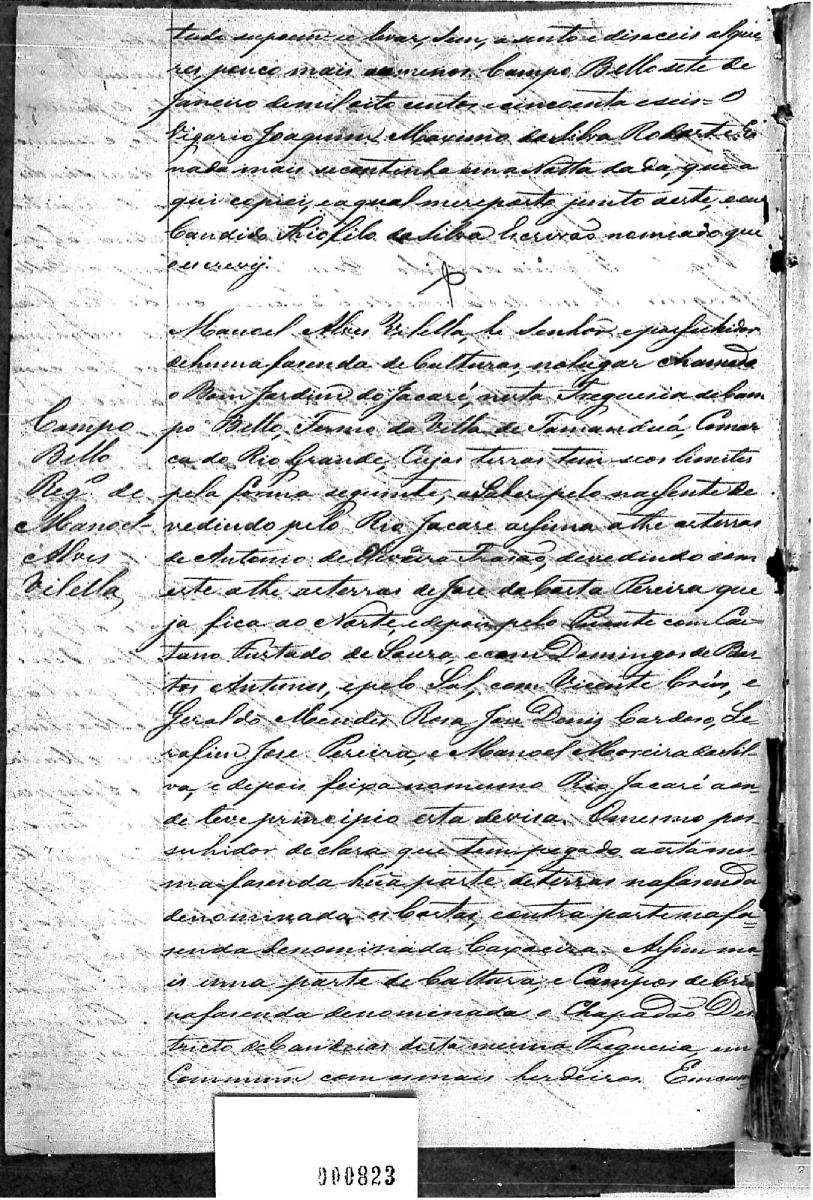 tudo supoem-se levar, sem, e santo e diseceis alque
res, pouco mais ou menos. Campo Bello sete de
Janeiro de mil oito centos e cincoenta e seis = O
Vigario Joaquim Maximo da Silva Rodarte. E
nada mais se continha em a Notta dada, que a
qui copiei, e a qual me reporto junto a este, e eu
Candido Thiofilo da Silva Escrivaõ nomeado que
escrevy.
Manoel Alves Vilella, he Senhôr e possuhidor
de huma fasenda de Culturas no lugar chamado
o Bom Jardim do Jacaré, nesta Freguesia de Cam
po Bello Termo da Villa de Tamanduá, Comar
ca do Rio Grande, Cujas terras tem seos limites
pela forma seguinte, a Saber pelo nassente de
vedindo pelo Rio Jacaré assima athe as terras
de Antonio de Oliveira Trasaõ, devedindo com
este athe as terras de José da Costa Pereira que
ja fica ao Norte, e depois pelo Puente com Cae
tano Furtado de Souza, e com Domingos de Bas
tos Antunes, e pelo Sul, com Vicente Crús, e
Geraldo Mendes Rosa, José Deniz Cardoso, Se
rafim José Pereira, e Manoel Moreira da Sil
va, e depois feixa no mesmo Rio Jacaré aon
de teve principio esta devisa. O mesmo pos
suhidor declara que tem pegado a esta mes
ma fasenda hua parte de terras na fasenda
denominada os Costas, e outra parte na fa
senda denominada Caxoeira. Assim ma
is uma parte de Cultura, e Campos de Criar
na fasenda denominada o Chapadaõ Des
tricto de Candeias desta mesma Freguesia, em
Commum com os mais herdeiros. E em
Campo
Bello
Reg.º de
Manoel
Alves
Vilella
000823